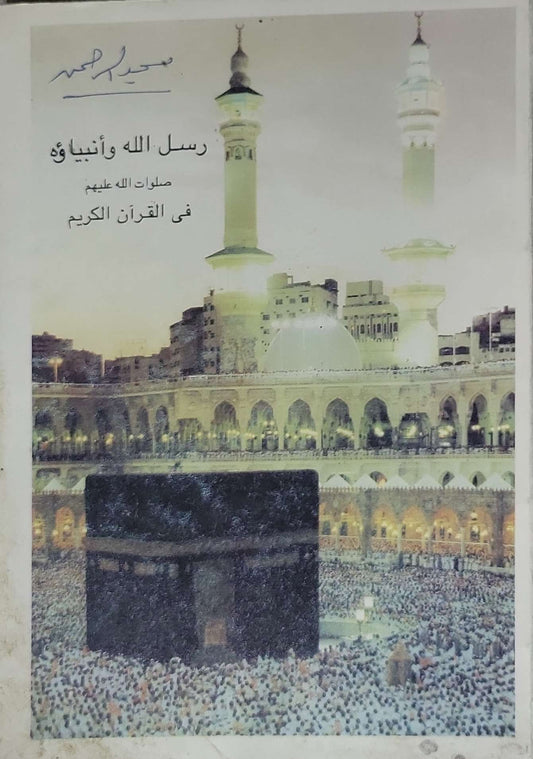 رسل الله وأنبياؤه
صلوات الله عليهم
في القرآن الكريم